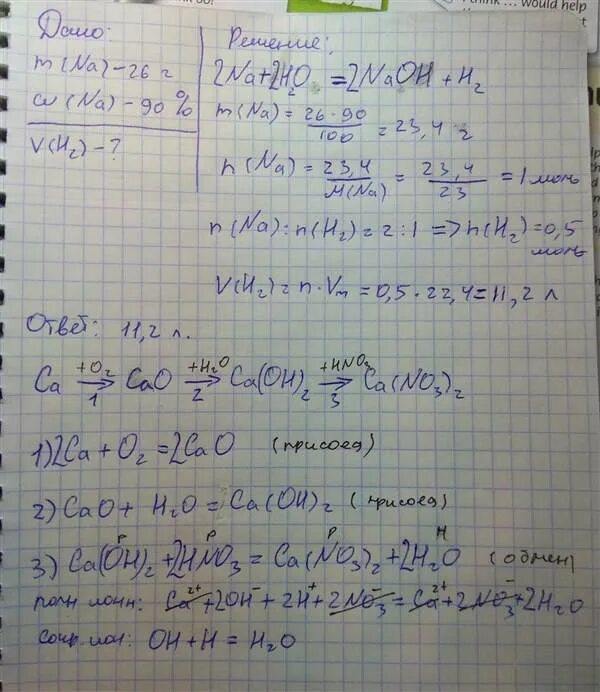 think ... would help
Дано:
m(Na) – 26 г
ω(Na) – 90 %
V(H₂) – ?
Решение:
2Na + 2H₂O = 2NaOH + H₂
m(Na) = 26 · 90 / 100 = 23,4 г
n(Na) = 23,4 / M(Na) = 23,4 / 23 = 1 моль
n(Na) : n(H₂) = 2 : 1 => n(H₂) = 0,5
моль
V(H₂) = n · Vm = 0,5 · 22,4 = 11,2 л
Ответ: 11,2 л.
Ca +O₂ →1 CaO +H₂O →2 Ca(OH)₂ +HNO₃ →3 Ca(NO₃)₂
1) 2Ca + O₂ = 2CaO (присоед)
2) CaO + H₂O = Ca(OH)₂ (присоед)
Р Р Р Н
3) Ca(OH)₂ + 2HNO₃ = Ca(NO₃)₂ + 2H₂O (обмен)
полн ионн: Ca²⁺ + 2OH⁻ + 2H⁺ + 2NO₃⁻ = Ca²⁺ + 2NO₃⁻ + 2H₂O
сокр. ион: OH + H = H₂O